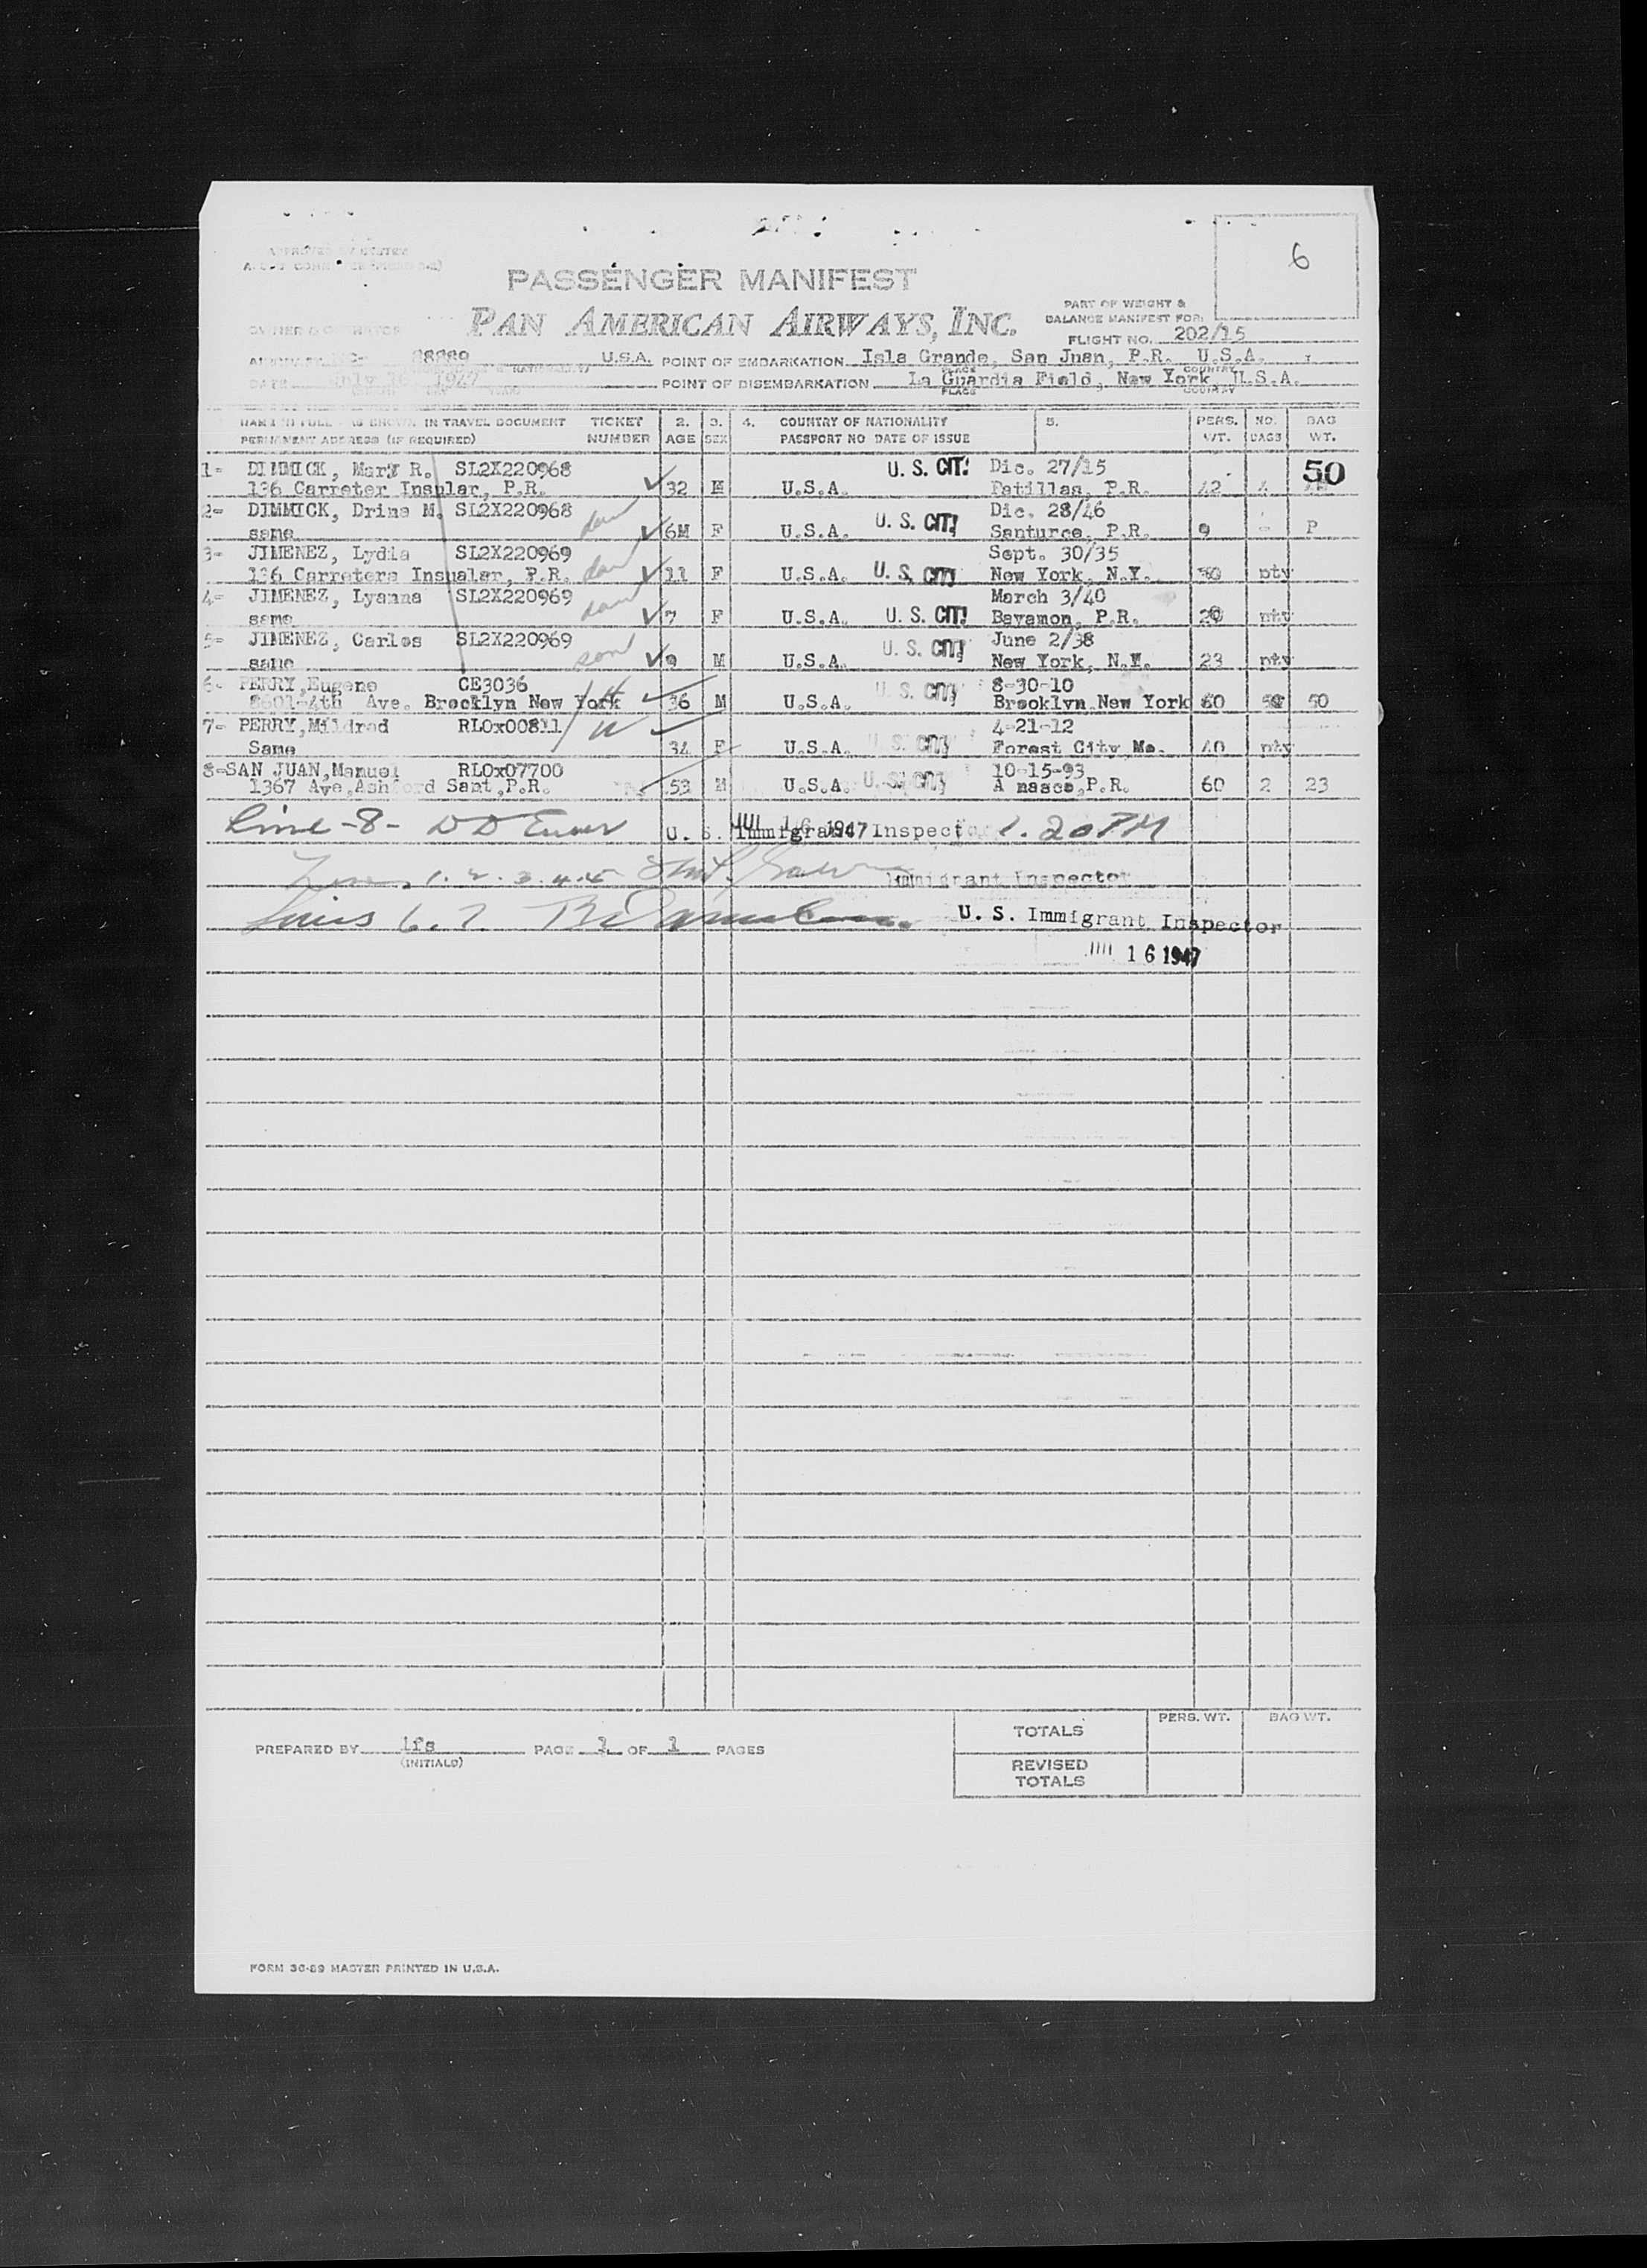 6
PASSENGER MANIFEST
PAN AMERICAN AIRWAYS, INC.
PART OF WEIGHT &
BALANCE MANIFEST FOR:
FLIGHT NO. 202/15
OWNER & OPERATOR
88889 U.S.A. POINT OF EMBARKATION Isla Grande, San Juan, P.R. U.S.A.
PLACE COUNTRY
DATE July 16 1947 POINT OF DISEMBARKATION La Guardia Field, New York, U.S.A.
PLACE COUNTRY
NAME IN FULL - AS SHOWN IN TRAVEL DOCUMENT TICKET 2. 3. 4. COUNTRY OF NATIONALITY 5. PERS. NO. BAG
PERMANENT ADDRESS (IF REQUIRED) NUMBER AGE SEX PASSPORT NO DATE OF ISSUE WT. BAGS WT.
1- DIMMICK, Mary R. SL2X220968 U. S. CIT. Dic. 27/15 50
136 Carreter Insular, P.R. 32 U.S.A. Patillas, P.R. 42 4
2- DIMMICK, Drina M. SL2X220968 dau U. S. CIT. Dic. 28/46
same 6M F U.S.A. Santurce, P.R. 9 - P
3- JIMENEZ, Lydia SL2X220969 dau Sept. 30/35
136 Carretera Insualar, P.R. 11 F U.S.A. U. S. CIT. New York, N.Y. pty
4- JIMENEZ, Lyanna SL2X220969 dau March 3/40
same 7 F U.S.A. U. S. CIT. Bayamon, P.R. 20 pty
5- JIMENEZ, Carlos SL2X220969 son U. S. CIT. June 2/38
same 9 M U.S.A. New York, N.Y. 23 pty
6- PERRY, Eugene CE3036 H U. S. CIT. 8-30-10
8601-4th Ave. Brooklyn New York 36 M U.S.A. Brooklyn New York 80 50
7- PERRY, Mildred RLOx00811 W 4-21-12
Same 34 F U.S.A. U. S. CIT. Forest City, Me. 40 pty
8-SAN JUAN, Manuel RLOx07700 10-15-93
1367 Ave, Ashford Sant, P.R. 53 M U.S.A. U. S. CIT. A nasco, P.R. 60 2 23
Line -8- U. S. Immigrant Inspector JUL 16 1947 1.20 PM
Lines 1. 2. 3. 4. 5 Immigrant Inspector
Lines 6. 7. U. S. Immigrant Inspector
16 1947
TOTALS PERS. WT. BAG WT.
PREPARED BY lfs PAGE 1 OF 1 PAGES
(INITIALS)
REVISED
TOTALS
FORM 30-89 MASTER PRINTED IN U.S.A.